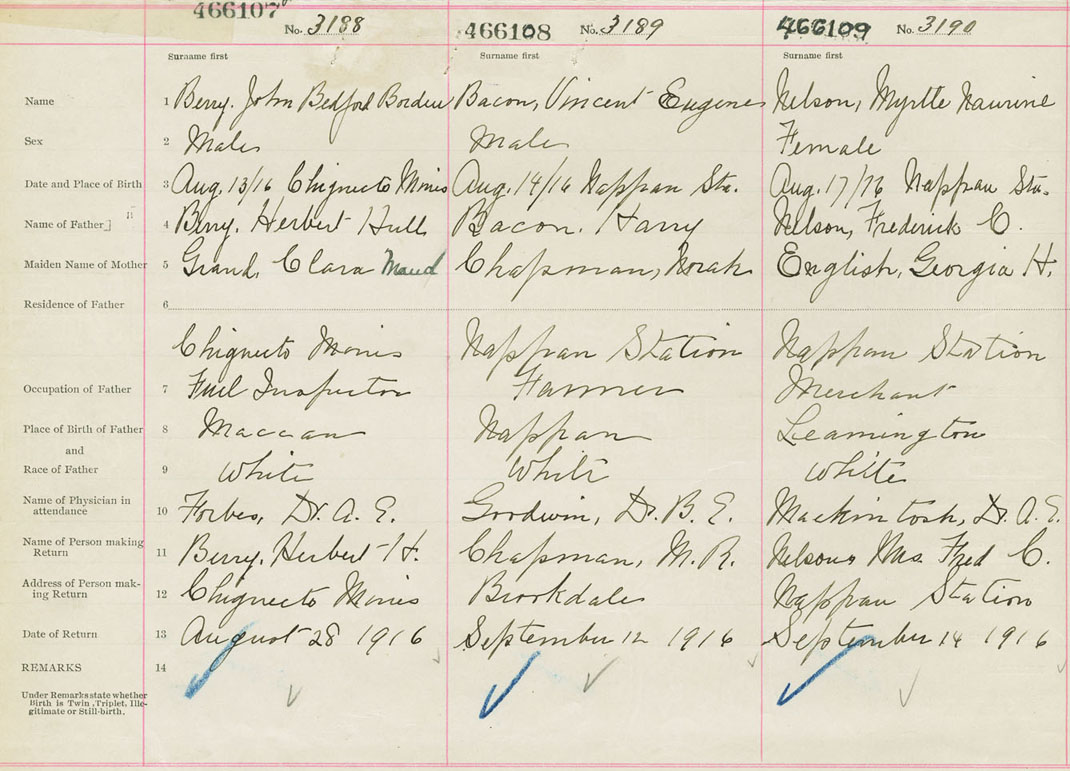 466107 No. 3188 466108 No. 3189 466109 No. 3190
Surname first Surname first Surname first
Name 1 Berry, John Bedford Borden Bacon, Vincent Eugene Nelson, Myrtle Naurine
Sex 2 Male Male Female
Date and Place of Birth 3 Aug. 13/16 Chignecto Mines Aug. 14/16 Nappan Sta. Aug. 17/16 Nappan Sta.
Name of Father 4 Berry, Herbert Hull Bacon, Harry Nelson, Frederick C.
Maiden Name of Mother 5 Grand, Clara Maud Chapman, Norah English, Georgia H.
Residence of Father 6
Chignecto Mines Nappan Station Nappan Station
Occupation of Father 7 Fuel Inspector Farmer Merchant
Place of Birth of Father 8 Maccan Nappan Leamington
and
Race of Father 9 White White White
Name of Physician in
attendance 10 Forbes, Dr. A. E. Goodwin, Dr. B. E. Mackintosh, Dr. A. E.
Name of Person making
Return 11 Berry, Herbert H. Chapman, M. R. Nelson, Mrs. Fred C.
Address of Person mak-
ing Return 12 Chignecto Mines Brookdale Nappan Station
Date of Return 13 August 28 1916 September 12 1916 September 14 1916
REMARKS 14
Under Remarks state whether
Birth is Twin, Triplet, Ille-
gitimate or Still-birth.